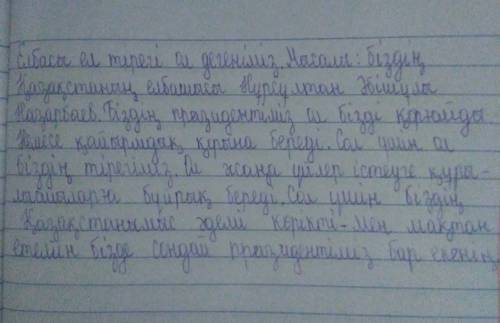 Елбасы ел тірегі ол дегеніміз. Мысалы: біздің
Қазақстаның елбашысы Нұрсұлтан Әбишұлы
Назарбаев. Біздің празидентіміз ол бізді қорюйды.
Немесе қайырмдық қорына береді. Сол үшін ол
біздің тірегіміз. Ол жаңа үйлер істеуге құры-
лышыларға бұйрық береді. Сол үшін біздің
Қазақстанымыс әдемі көрікті-мен мақтан
етемін бізде сондай празидентіміз бар екенің